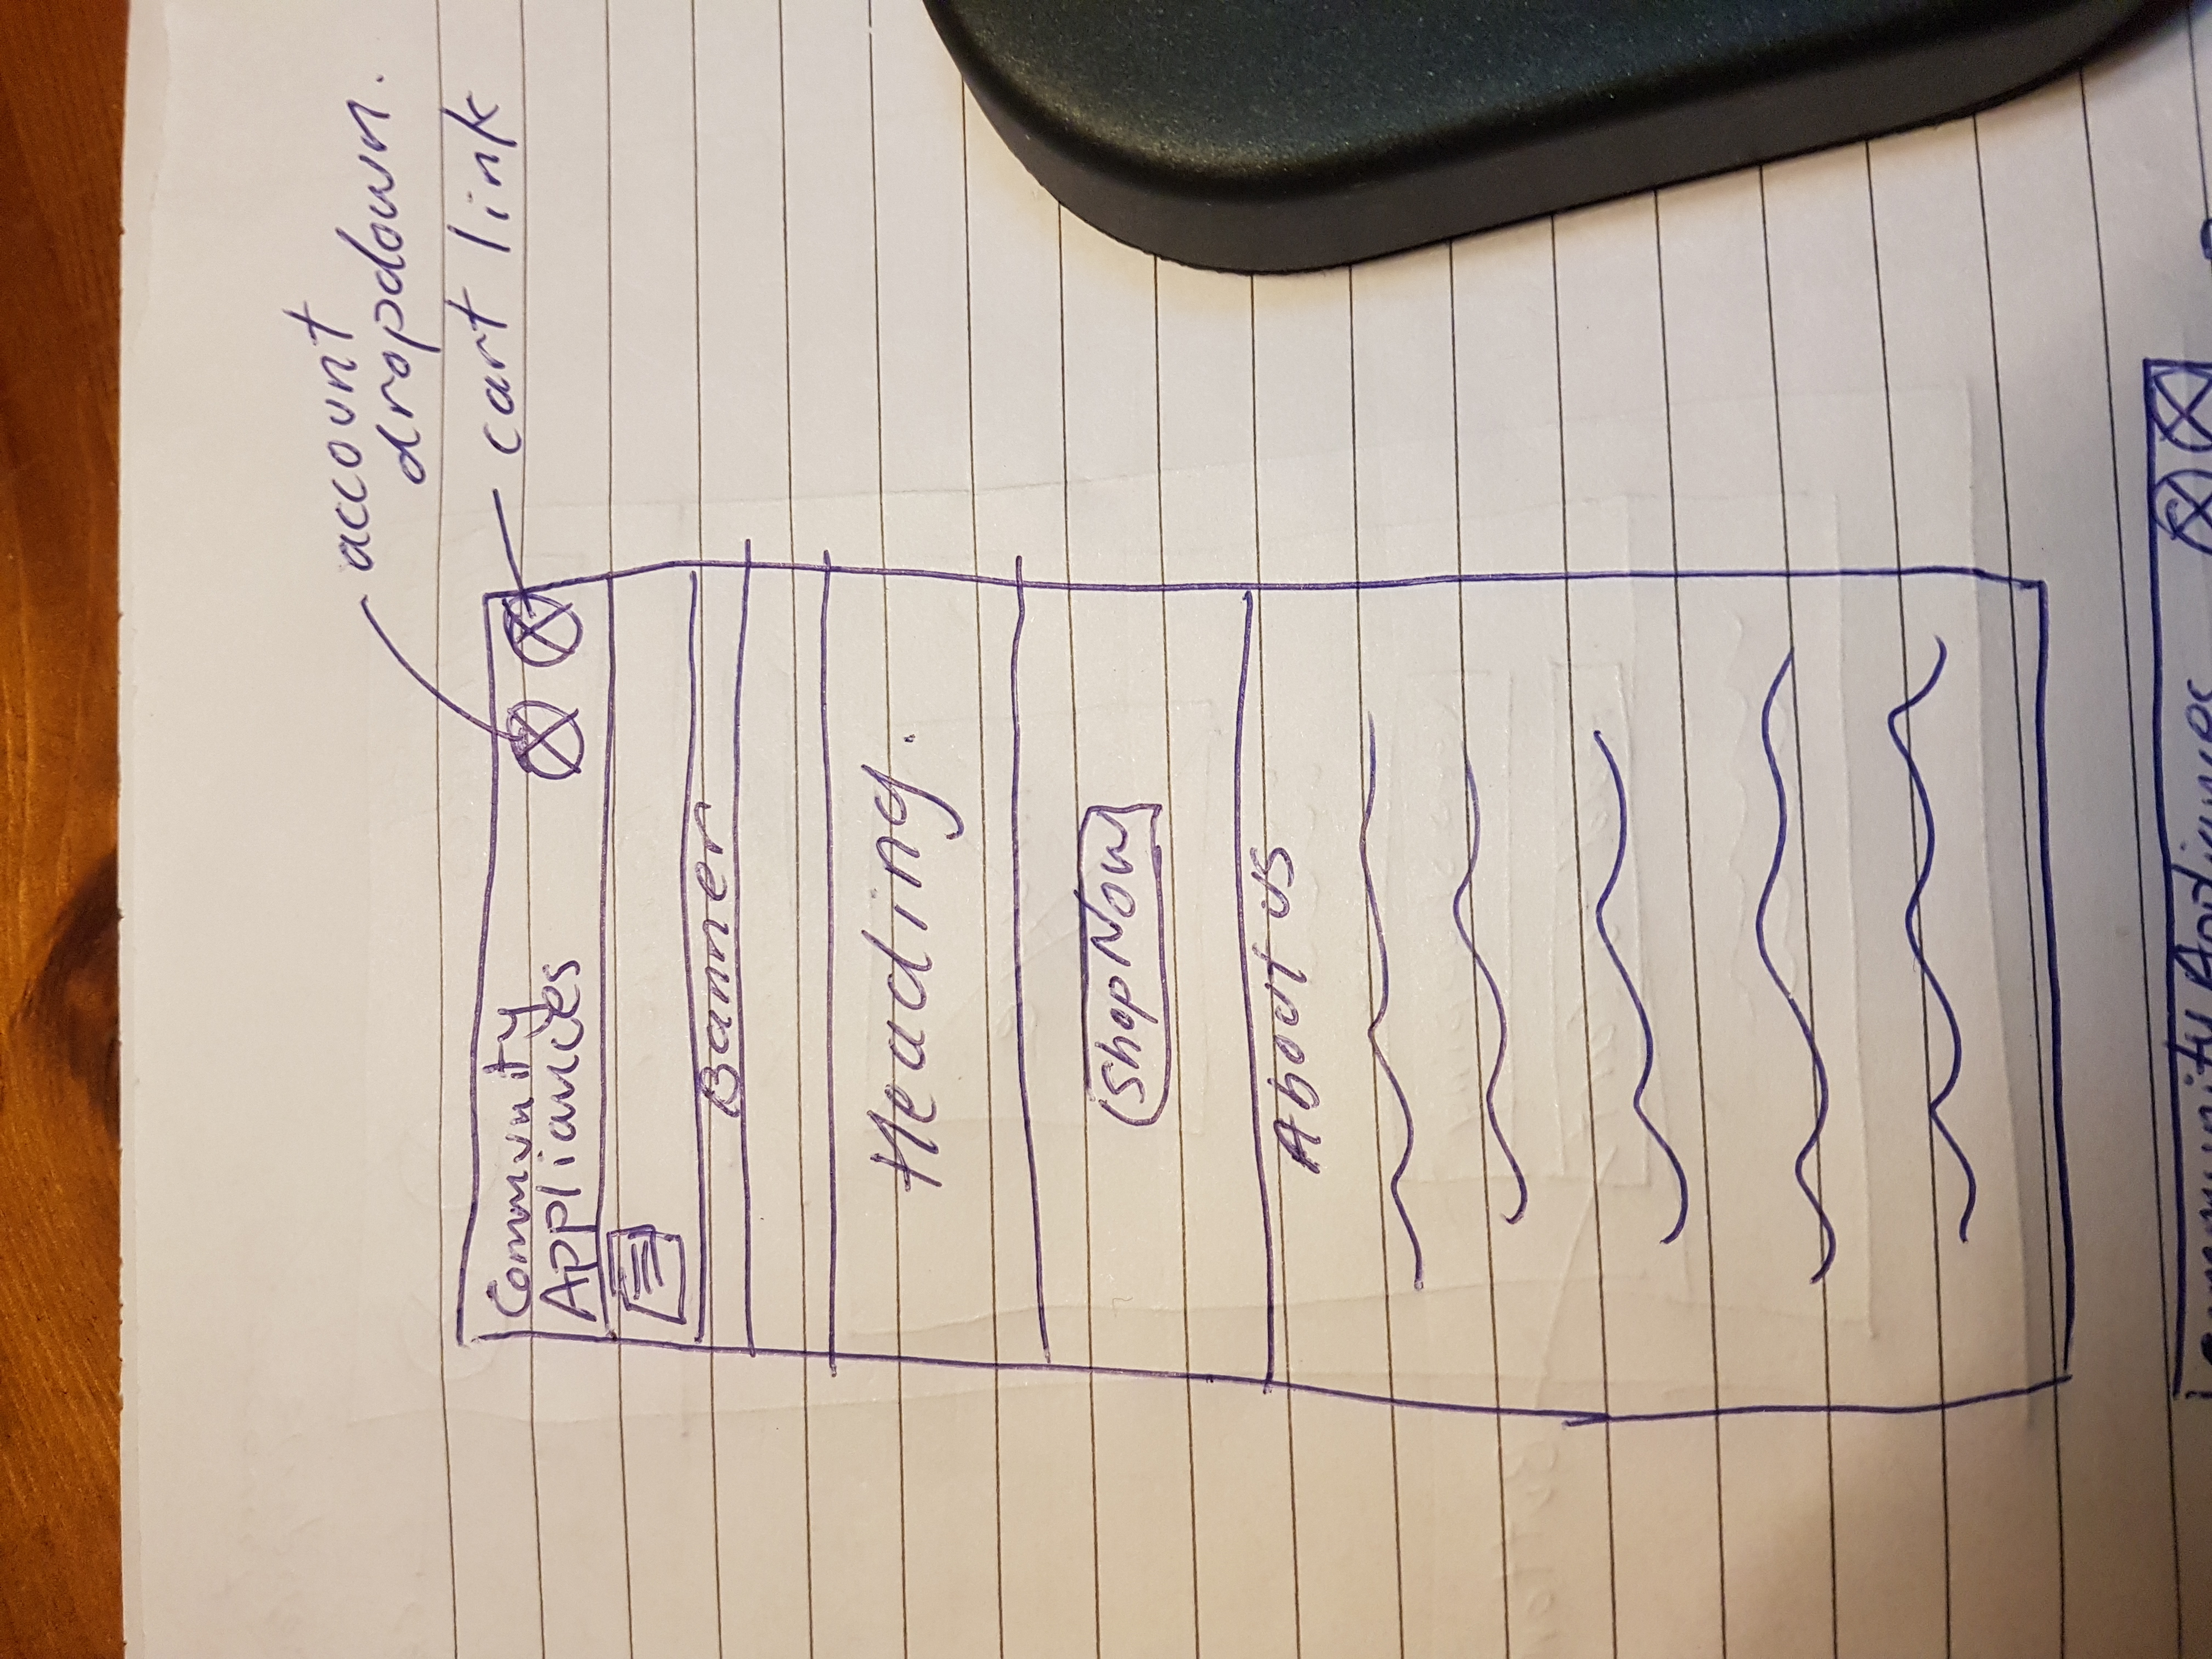 account
dropdown.
cart link
Community
Appliances
Banner
Heading.
Shop Now
About us
Community Appliances